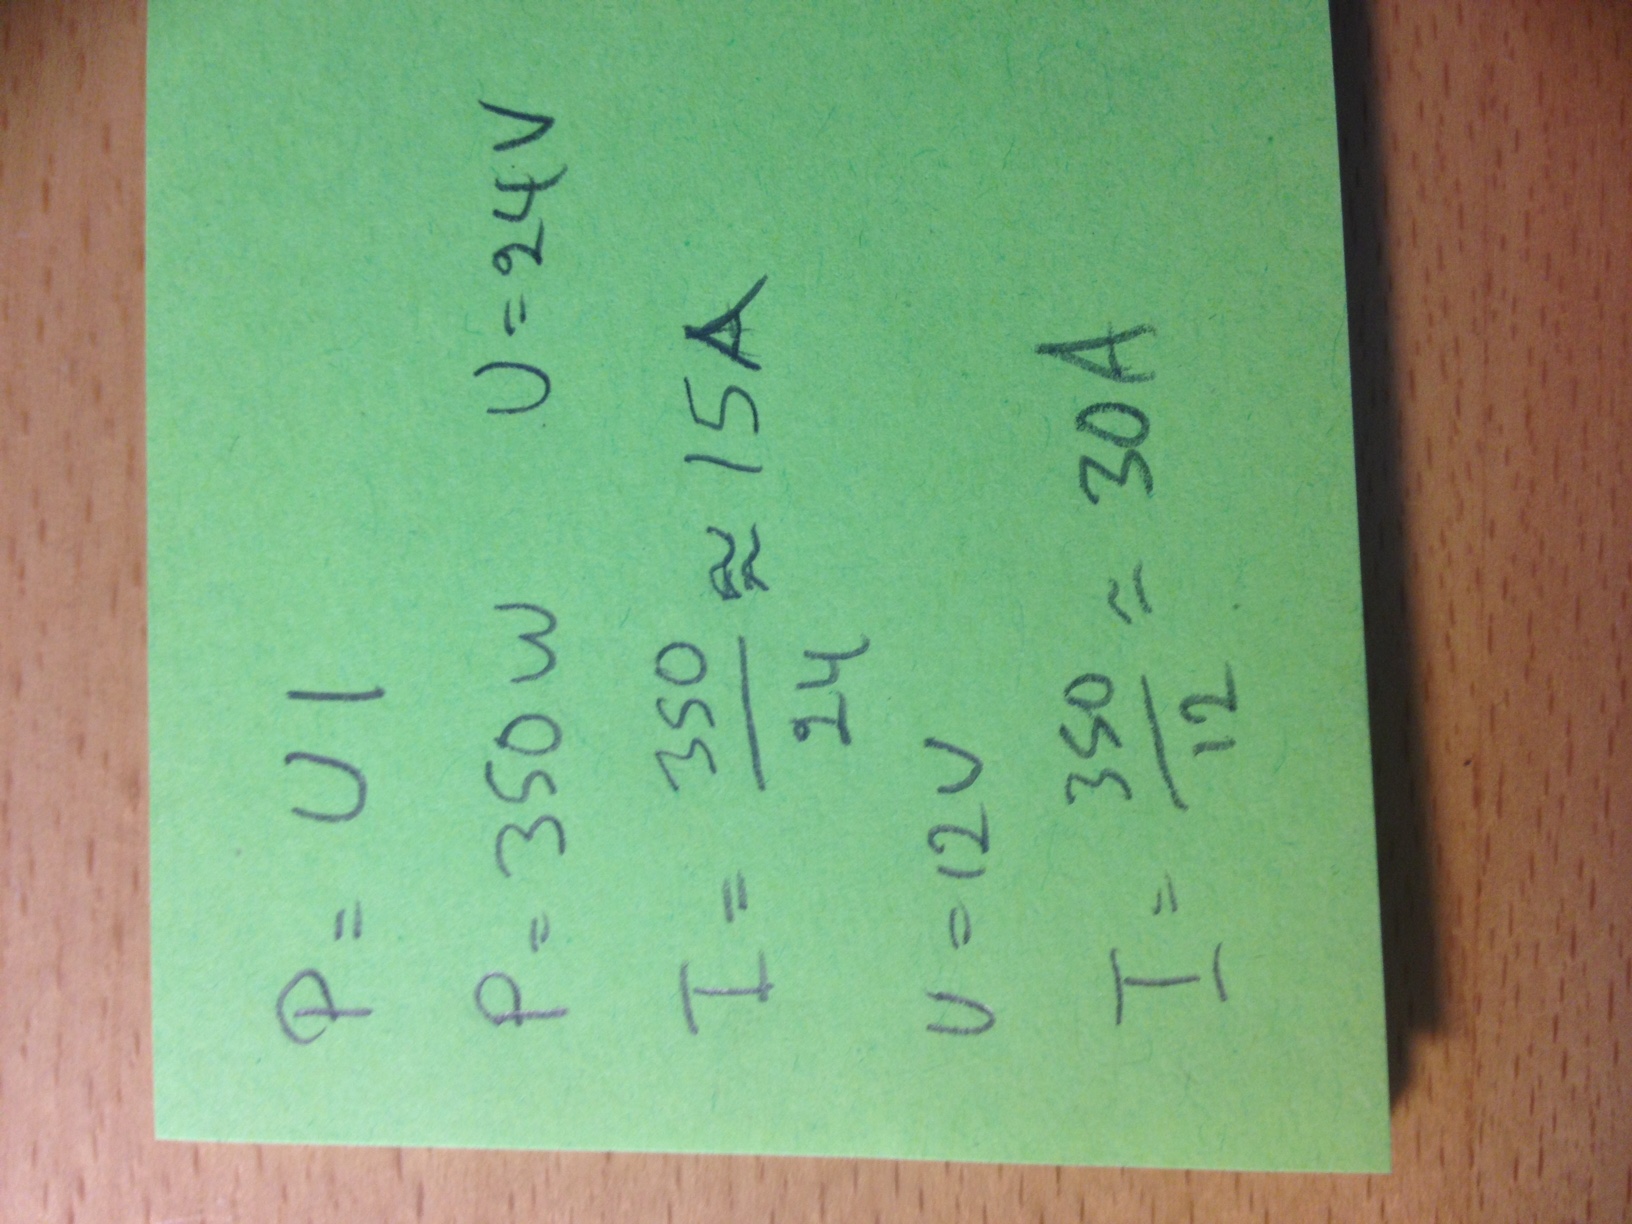 P = U I
P = 350 W U = 24V
I = 350/24 ≈ 15A
U = 12V
I = 350/12 = 30A